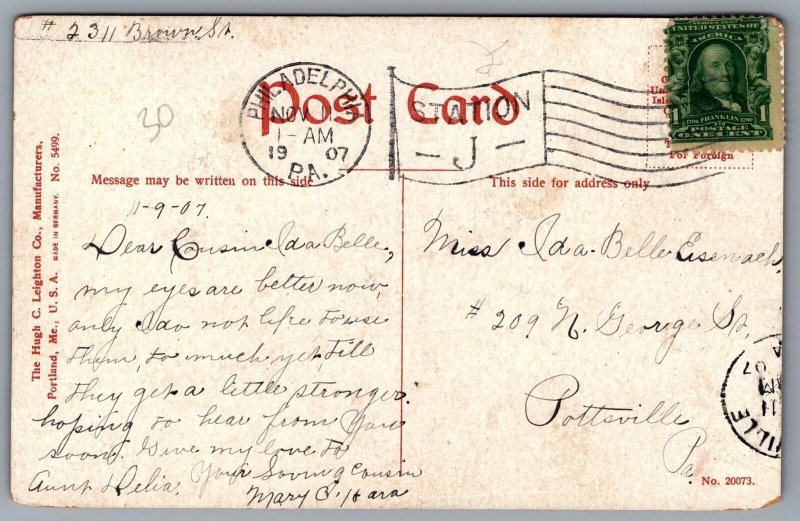 # 2311 Brown St.
Post Card
PHILADELPHIA
NOV 11
1-AM
19 07
PA.
STATION
- J -
UNITED STATES OF
AMERICA
1 1
1706 FRANKLIN 1790
POSTAGE
ONE CENT
For Foreign
30
Message may be written on this side
This side for address only
The Hugh C. Leighton Co., Manufacturers,
Portland, Me., U. S. A. MADE IN GERMANY. No. 5499.
11-9-07.
Dear Cousin Ida Belle,
my eyes are better now,
only I do not like to use
them, to much yet, till
they get a little stronger.
hoping to hear from you
soon. Give my love to
Aunt Delia. Your Loving cousin
Mary C. Hara
Miss Ida-Belle Eisenach,
# 209 N. George St,
Pottsville
Pa
VILLE
11
AM
07
No. 20073.